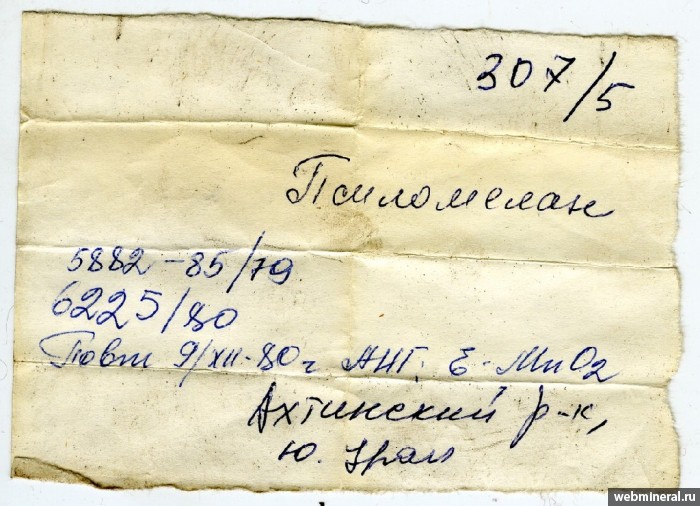 307/5
Псиломелан
5882-85/79
6225/80
Повт 9/XII-80г АНГ. ε-MnO2
Ахтинский р-к,
Ю. Урал
webmineral.ru